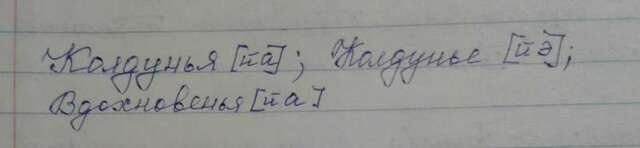 Колдунья [йа]; Колдунье [йэ];
Вдохновенья [йа]